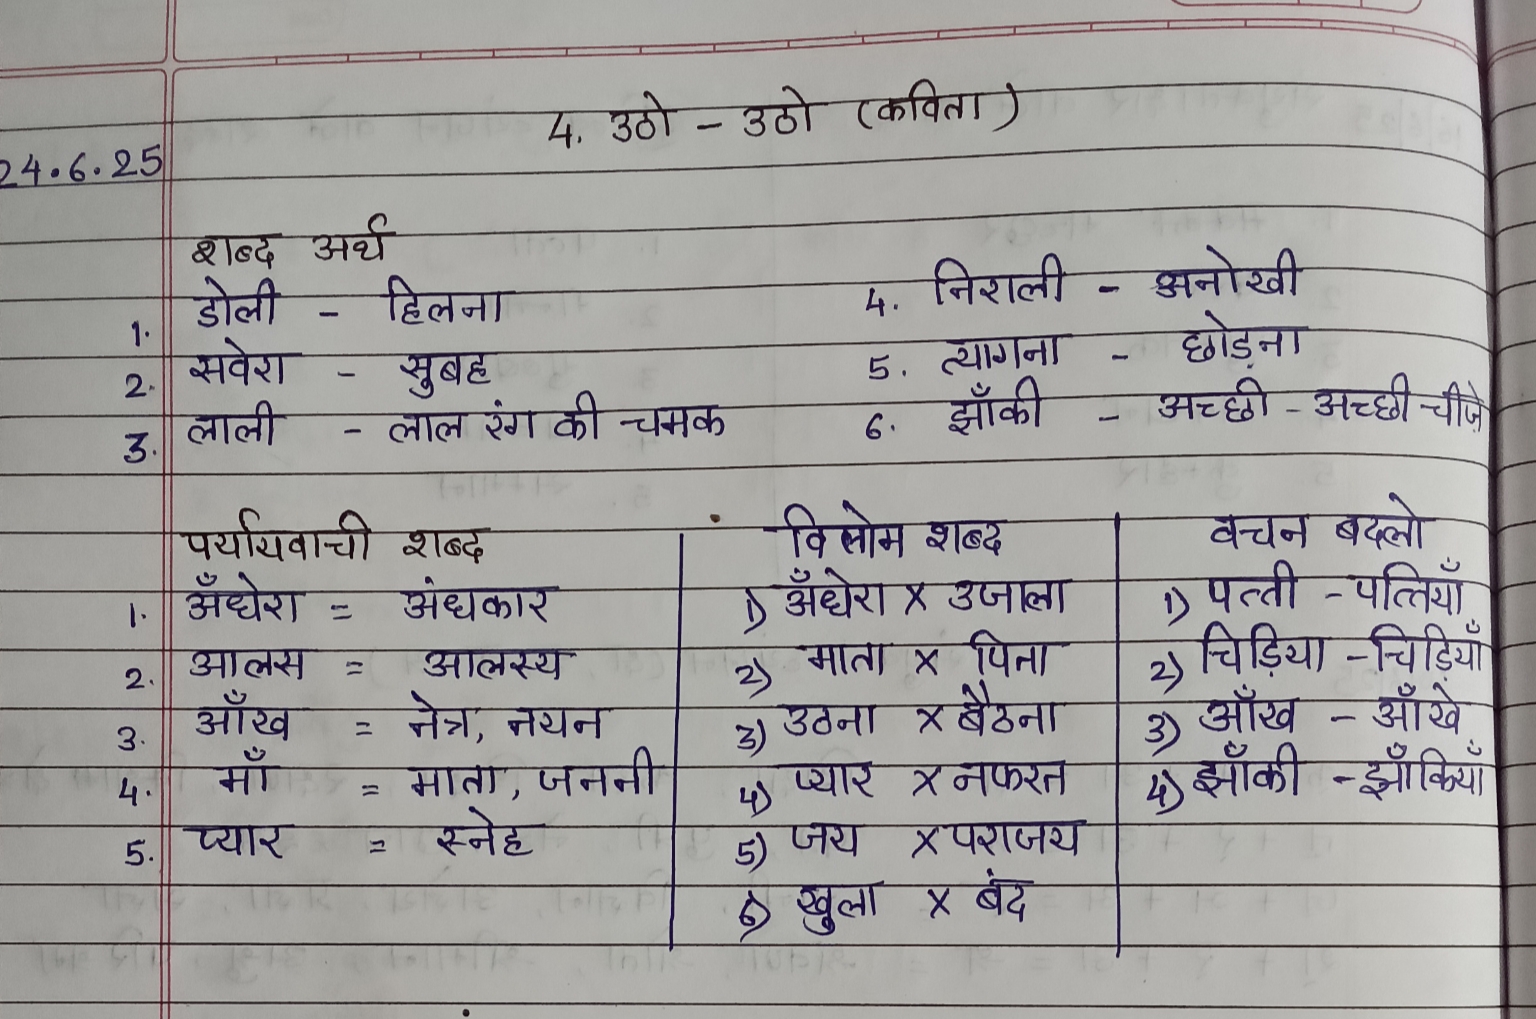 4. उठो - उठो (कविता)
24.6.25
शब्द अर्थ
1. डोली - हिलना
2. सवेरा - सुबह
3. लाली - लाल रंग की चमक
4. निराली - अनोखी
5. त्यागना - छोड़ना
6. झाँकी - अच्छी - अच्छी चीज़े
पर्यायवाची शब्द
1. अँधेरा = अंधकार
2. आलस = आलस्य
3. आँख = नेत्र, नयन
4. माँ = माता, जननी
5. प्यार = स्नेह
विलोम शब्द
1) अँधेरा x उजाला
2) माता x पिता
3) उठना x बैठना
4) प्यार x नफरत
5) जय x पराजय
6) खुला x बंद
वचन बदलो
1) पत्ती - पत्तियाँ
2) चिड़िया - चिड़ियाँ
3) आँख - आँखे
4) झाँकी - झाँकियाँ